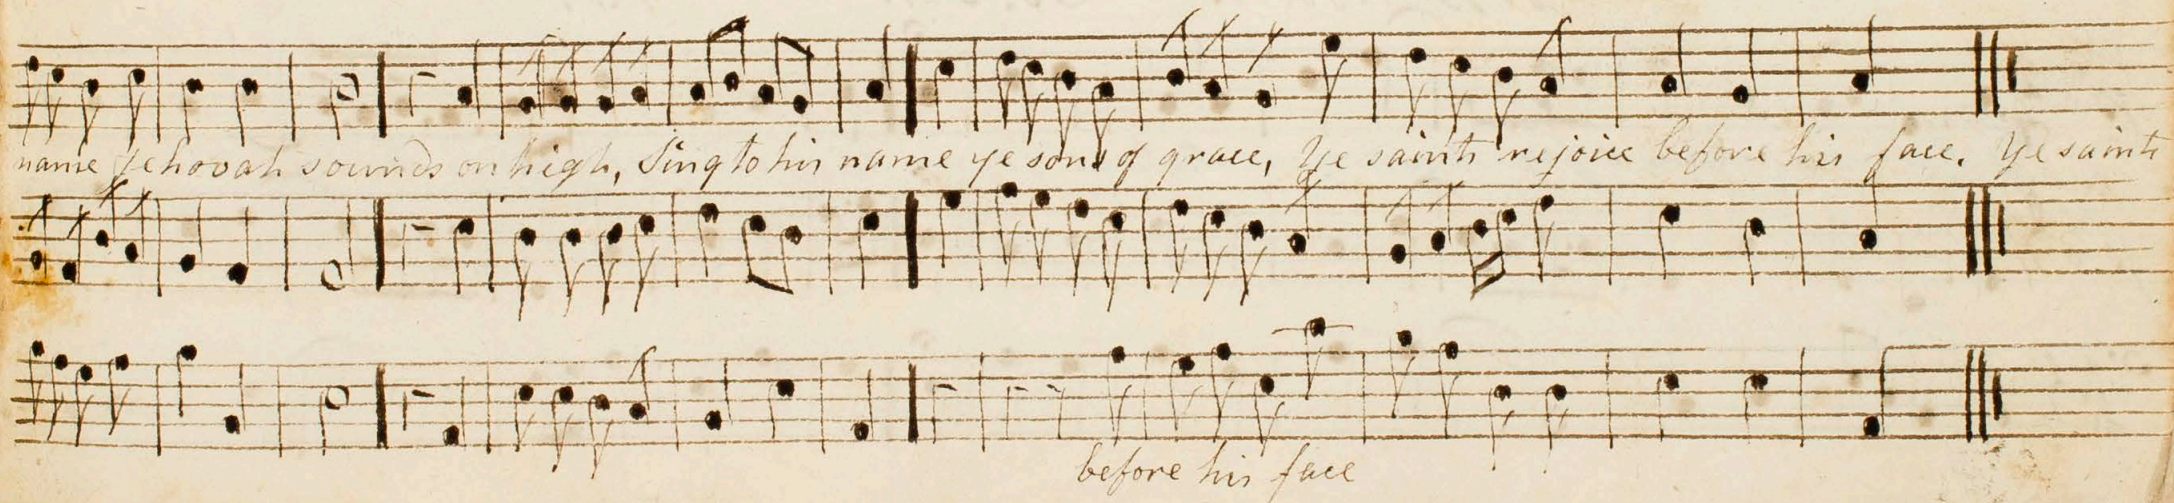 name Jehovah sounds on high, Sing to his name ye sons of grace, Ye saints rejoice before his face. Ye saints
before his face